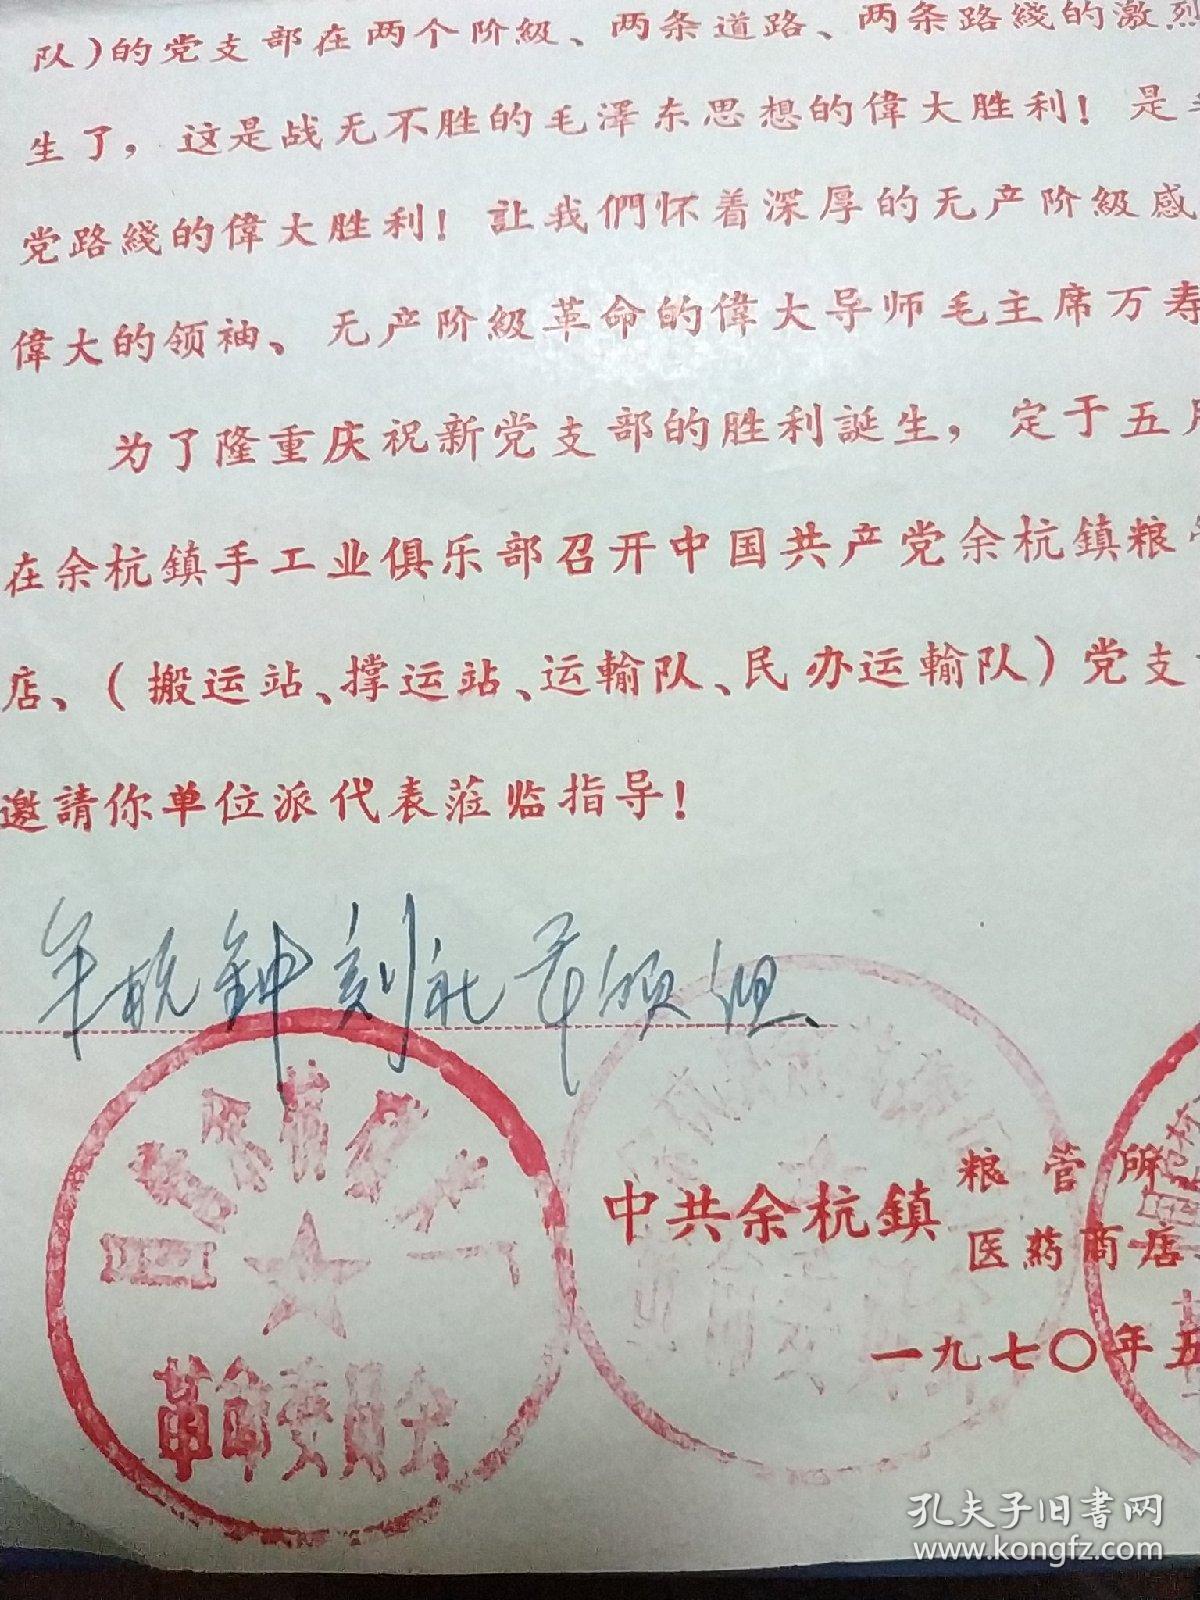 队)的党支部在两个阶級、两条道路、两条路綫的激烈
生了，这是战无不胜的毛澤东思想的偉大胜利！是
党路綫的偉大胜利！讓我們怀着深厚的无产阶級感
偉大的领袖、无产阶級革命的偉大导师毛主席万寿
为了隆重庆祝新党支部的胜利誕生，定于五月
在余杭鎮手工业俱乐部召开中国共产党余杭鎮粮
店、(搬运站、撑运站、运輸队、民办运輸队)党支
邀請你单位派代表蒞临指导！
钟刻社
革命委員会
中共余杭鎮
粮管所
医药商店
一九七〇年五
孔夫子旧書网
www.kongfz.com